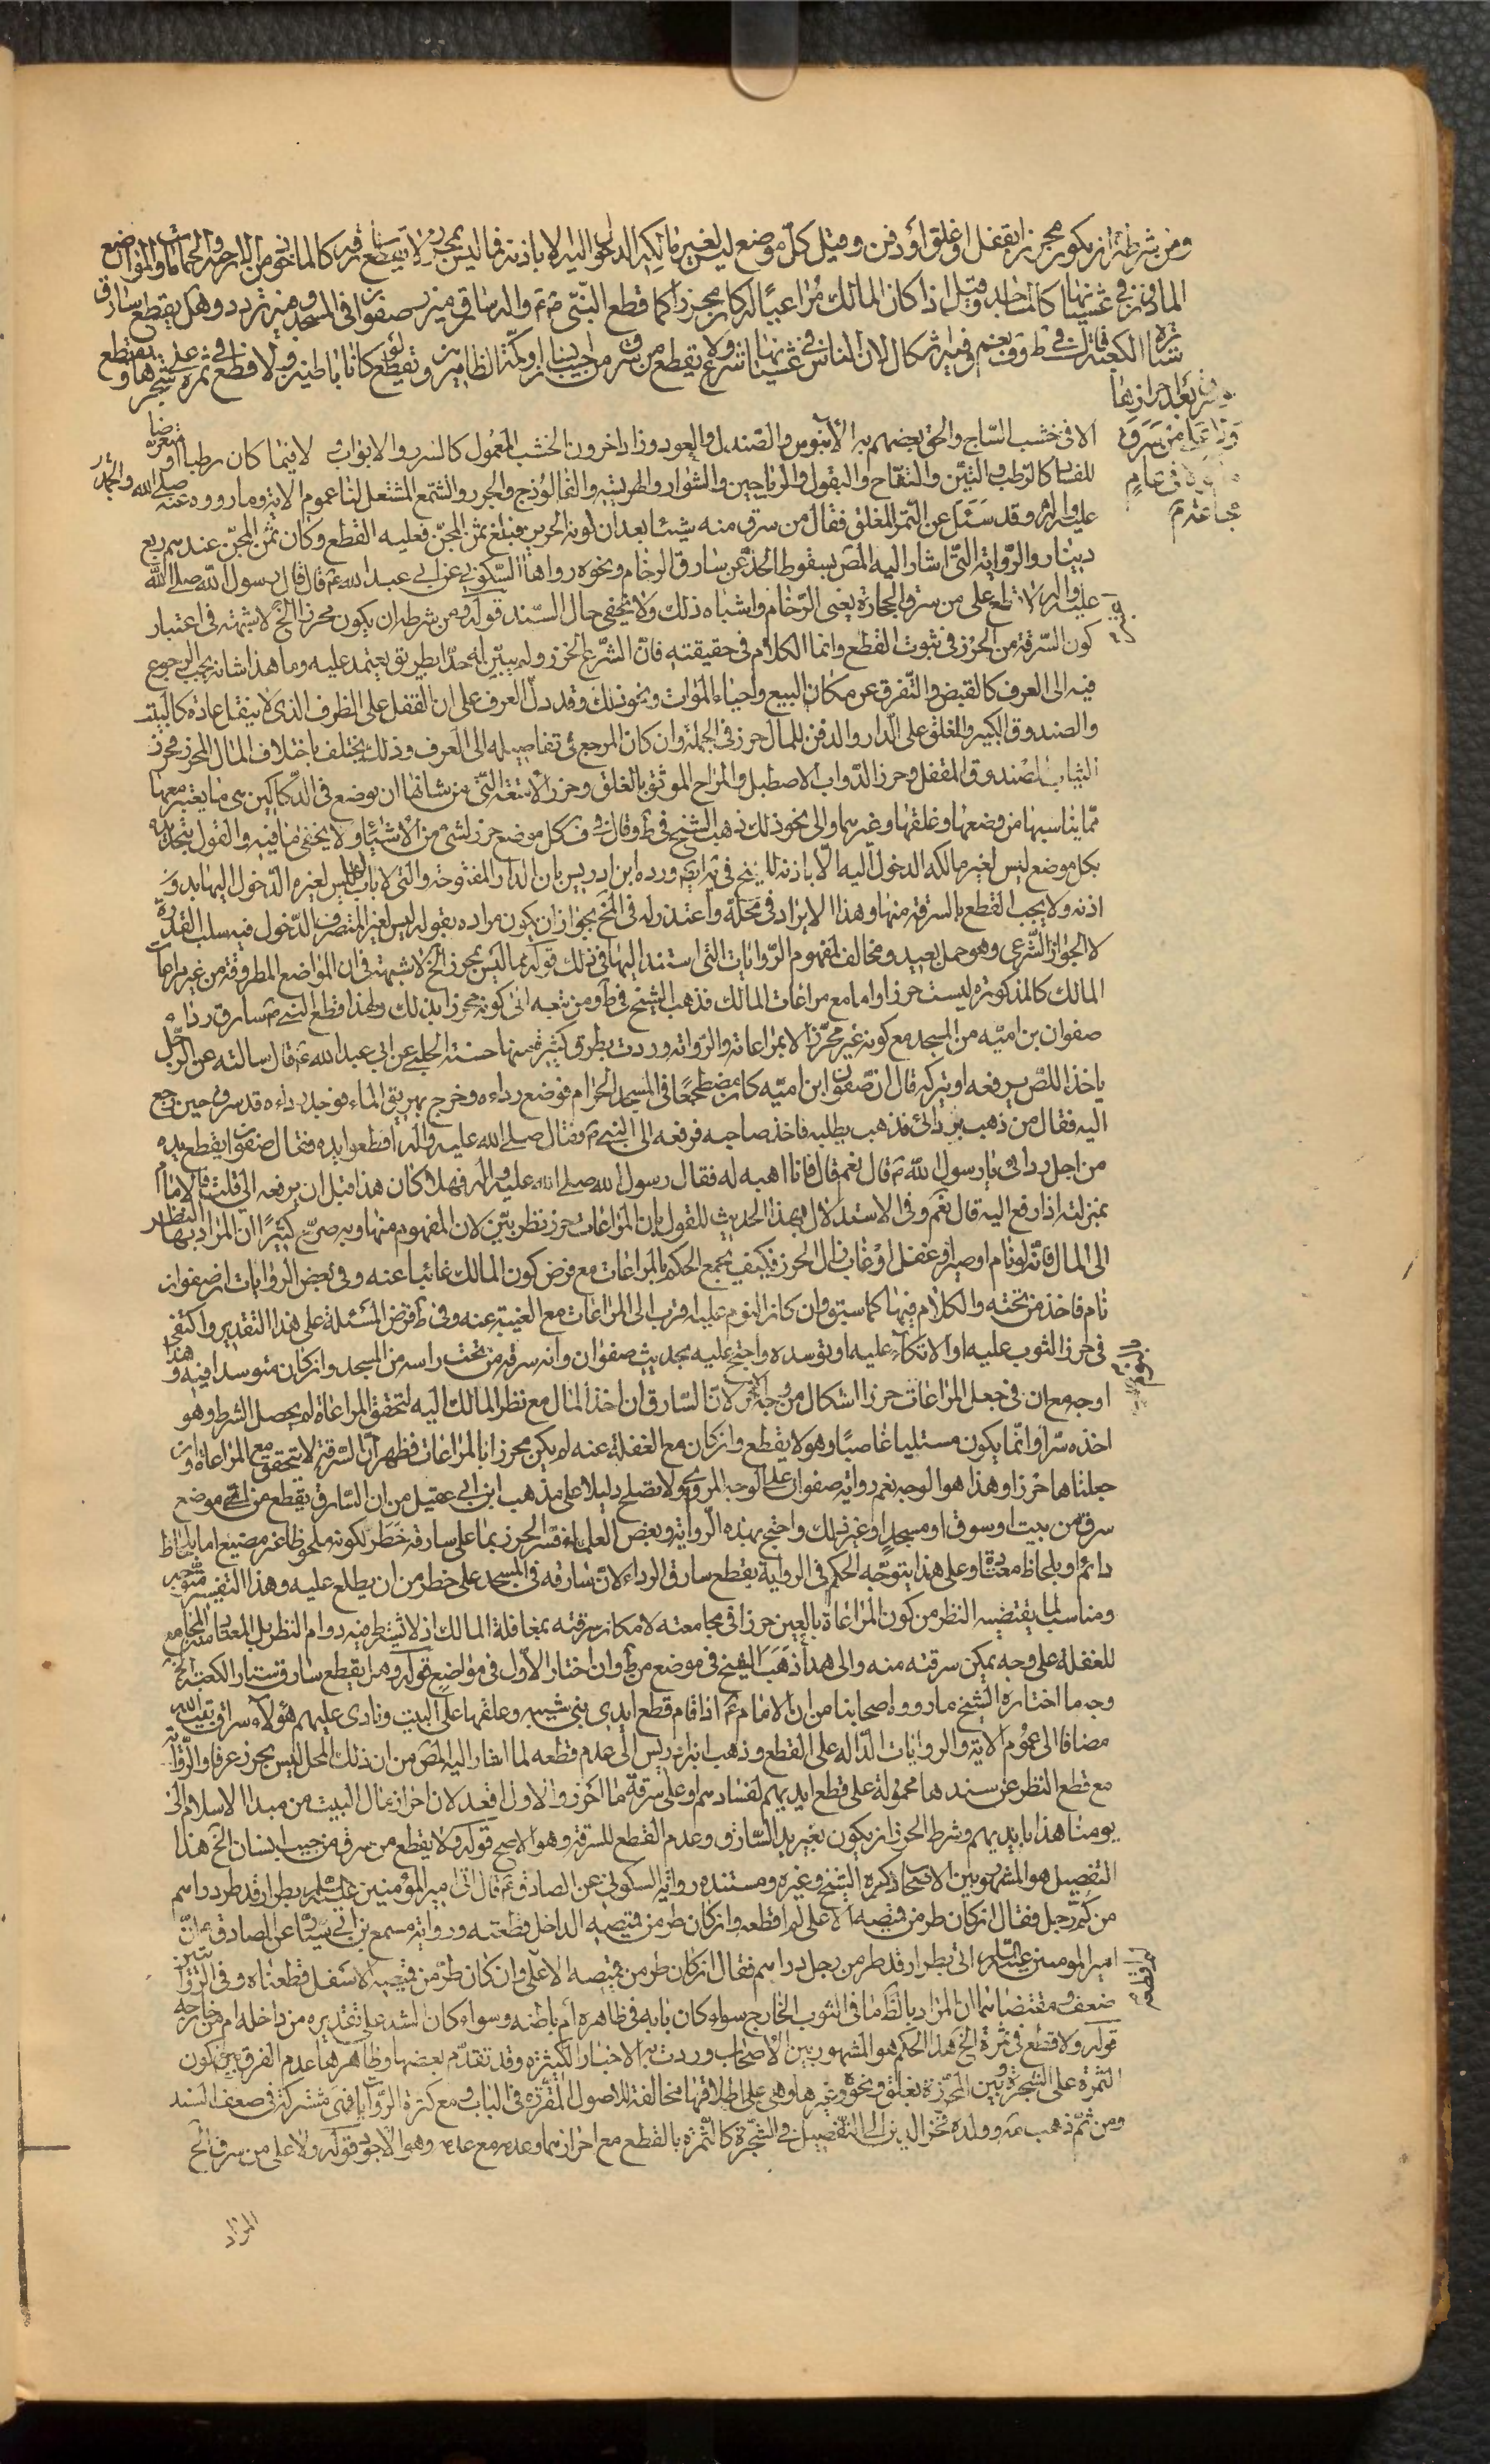 ومن شرطه ان يكون محرزا بقفل او غلق او دفن وقيل كل موضع ليس لغير مالكه الدخول اليه الا باذنه فما ليس بمحرز لا يقطع سارقه كالماخوذ من الارحية والحمامات والمواضع
الماذون في غشيانها كالمساجد وقيل اذا كان المالك مراعيا له كان محرزا كما قطع النبي ص سارق ميزر صفوان في المسجد وفيه تردد وهل يقطع سارق
ستارة الكعبة قال في ط وف نعم وفيه اشكال لان الناس في غشيانها شرع ولا يقطع من سرق من جيب انسان او كمه الظاهرين ويقطع لو كانا باطنين ولا قطع في ثمرة على شجرها ويقطع
لو سرق بعد احرازها
ولا على من سرق
ماكولا في عام
مجاعة
الا في خشب الساج والحق بعضهم به الابنوس والصندل والعود وزاد اخرون الخشب المعمول كالسرر والابواب لا فيما كان رطبا او متعرضا
للفساد كالرطب والتين والتفاح والبقول والرياحين والشواء والهريسة والفالوذج والجزر والشمع المشتعل لنا عموم الاية وما رووه عنه صلى الله
عليه واله وقد سئل عن التمر المعلق فقال من سرق منه شيئا بعد ان يؤيه الجرين فبلغ ثمن المجن فعليه القطع وكان ثمن المجن عندهم ربع
دينار والرواية التي اشار اليه المص بسقوط الحد عن سارق الرخام ونحوه رواها السكوني عن ابي عبد الله ع قال قال رسول الله صلى الله
عليه واله لا قطع على من سرق الحجارة يعني الرخام واشباه ذلك ولا يخفى حال السند قوله ومن شرطه ان يكون محرزا الخ لا شبهة في اعتبار
كون السرقة من الحرز في ثبوت القطع وانما الكلام في حقيقته فان الشرع الحرز ولم يبين له حدا بطريق يعتمد عليه وما هذا شانه يجب الرجوع
فيه الى العرف كالقبض والتفرق عن مكان البيع واحياء الموات ونحو ذلك وقد دل العرف على ان القفل على الظرف الذي لا ينقل عادة كالبيت
والصندوق الكبير والمغلق على الدار والدفن للمال حرز في الجملة وان كان المرجع في تفاصيله الى العرف وذلك يختلف باختلاف المال المحرز فحرز
الثياب الصندوق المقفل وحرز الدواب الاصطبل والمراح الموثق بالغلق وحرز الامتعة التي من شانها ان توضع في الدكاكين هي مما يعتبر معها
مما يناسبها من وضعها وغلقها وغيرهما والى نحو ذلك ذهب الشيخ في ط وقال في ف كل موضع حرز لشئ من الاشياء ولا يخفى ما فيه والقول بتحديده
بكل موضع ليس لغير مالكه الدخول اليه الا باذنه للشيخ في ية ايضا ورده ابن ادريس بان الدار المفتوحة والتي لا باب لها ليس لغيره الدخول اليها بدون
اذنه ولا يجب القطع بالسرقة منها وهذا الايراد في محله واعتذر له في المخ بجواز ان يكون مراده بقوله ليس لغير المتصرف الدخول فيه سلب القدرة
لا الجواز الشرعي وهو حمل بعيد ومخالف لمفهوم الروايات التي استند اليها في ذلك قوله فما ليس بمحرز الخ لا شبهة في ان المواضع المطروقة من غير مراعات
المالك كالمذكورة ليست حرزا واما مع مراعات المالك فذهب الشيخ في ط ومن تبعه الى كونه محرزا بذلك ولهذا قطع النبي ص سارق رداء
صفوان بن امية من المسجد مع كونه غير محرز الا بمراعاته والرواية وردت بطرق كثيرة منها حسنة الحلبي عن ابي عبد الله ع قال سالته عن الرجل
ياخذ اللص يرفعه او يتركه قال ان صفوان ابن امية كان مضطجعا في المسجد الحرام فوضع رداءه وخرج يهريق الماء فوجد رداءه قد سرق حين رجع
اليه فقال من ذهب بردائي فذهب يطلبه فاخذ صاحبه فرفعه الى النبي ص فقال صلى الله عليه واله اقطعوا يده فقال صفوان ايقطع يده
من اجل ردائي يا رسول الله ص قال نعم قال فانا اهبه له فقال رسول الله صلى الله عليه واله فهلا كان هذا قبل ان يرفعه الي قلت فالامام
بمنزلته اذا رفع اليه قال نعم وفي الاستدلال بهذا الحديث للقول بان المراعات حرز نظر بين لان المفهوم منها وبه صرح كثيرا ان المراد بها النظر
الى المال فانه لو نام او غفل او غاب زال الحرز فكيف يجمع الحكم بالمراعات مع فرض كون المالك غائبا عنه وفي بعض الروايات ان صفوان
نام فاخذ من تحته والكلام فيها كما سبق وان كان النوم عليه اقرب الى المراعات مع الغيبة عنه وفي ط فرض المسئلة على هذا التقدير واكتفى
في حرز الثوب عليه او الاتكاء عليه او توسده واحتج عليه بحديث صفوان وانه سرقه من تحت راسه من المسجد وان كان متوسدا فيه وهذا
اوجه مع ان في جعل المراعات حرزا اشكال من وجه اخر لان السارق ان اخذ المال مع نظر المالك اليه لتحقق المراعاة لم يحصل الشرط وهو
اخذه سرا وانما يكون مستلبا غاصبا وهو لا يقطع وان كان مع الغفلة عنه لم يكن محرزا بالمراعات فظهر ان السرقة لا تتحقق مع المراعاة وان
جعلناها حرزا وهذا هو الوجه نعم رواية صفوان على الوجه المروي ولا تصلح دليلا على مذهب ابن ابي عقيل من ان السارق يقطع من اي موضع
سرق من بيت او سوق او مسجد او غير ذلك واحتج بهذه الرواية وبعض العلماء فسر الحرز بما على سارقه خطر لكونه ملحوظا غير مضيع اما بلحاظ
دائم او بلحاظ معتاد وعلى هذا يتوجه الحكم في الرواية بقطع سارق الرداء لان سارقه في المسجد على خطر من ان يطلع عليه وهذا التفسير متوجه
ومناسب لما يقتضيه النظر من كون المراعاة بالعين حرزا في مجامعته لامكان سرقته بمغافلة المالك اذ لا يشترط فيه دوام النظر بل المعتاد منه المجامع
للغفلة على وجه يمكن سرقته منه والى هذا ذهب الشيخ في موضع من ط وان اختار الاول في مواضع قوله وهل يقطع سارق ستارة الكعبة الخ
وجه ما اختاره الشيخ ما رووه اصحابنا من ان الامام ع اذا قام قطع ايدي بني شيبه وعلقها على البيت ونادى عليهم هؤلاء سراق بيت الله
مضافا الى عموم الاية والروايات الدالة على القطع وذهب ابن ادريس الى عدم قطعه لما اشار اليه المص من ان ذلك المحل ليس بحرز عرفا والرواية
مع قطع النظر عن سندها محمولة على قطع ايديهم لفسادهم او على سرقة ما احرز والاول اقعد لان احراز مال البيت من مبدا الاسلام الى
يومنا هذا بايديهم وشرط الحرز ان يكون بغير يد السارق وعدم القطع للسرقة وهو الاصح قوله ولا يقطع من سرق من جيب انسان الخ هذا
التفصيل هو المشهور بين الاصحاب ذكره الشيخ وغيره ومستنده رواية السكوني عن الصادق ع قال اتى امير المؤمنين عليه السلم بطرار قد طر دراهم
من كم رجل فقال ان كان طر من قميصه الاعلى لم اقطعه وان كان طر من قميصه الداخل قطعته ورواية مسمع بن ابي سيار عن الصادق ع ان
امير المؤمنين عليه السلم اتى بطرار قد طر من رجل دراهم فقال ان كان طر من قميصه الاعلى وان كان طر من قميصه الاسفل قطعناه وفي الروايتين
ضعف ومقتضاهما ان المراد بالظاهر ما في الثوب الخارج سواء كان بابه في ظاهره ام باطنه وسواء كان الشد على تقديره من داخله ام من خارجه
قوله ولا قطع في ثمرة الخ هذا الحكم هو المشهور بين الاصحاب وردت به الاخبار الكثيرة وقد تقدم بعضها وظاهرها عدم الفرق بين كون
الثمرة على الشجرة وبين المحرزة بغلق ونحوه وغيرها وهي على اطلاقها مخالفة للاصول المقررة في الباب ومع كثرة الروايات فهي مشتركة في ضعف السند
ومن ثم ذهب العلامة وولده فخر الدين الى التفصيل في الشجرة كالثمرة بالقطع مع احرازهما وعدمه مع عدمه وهو الاجود قوله ولا على من سرق الخ
المراد